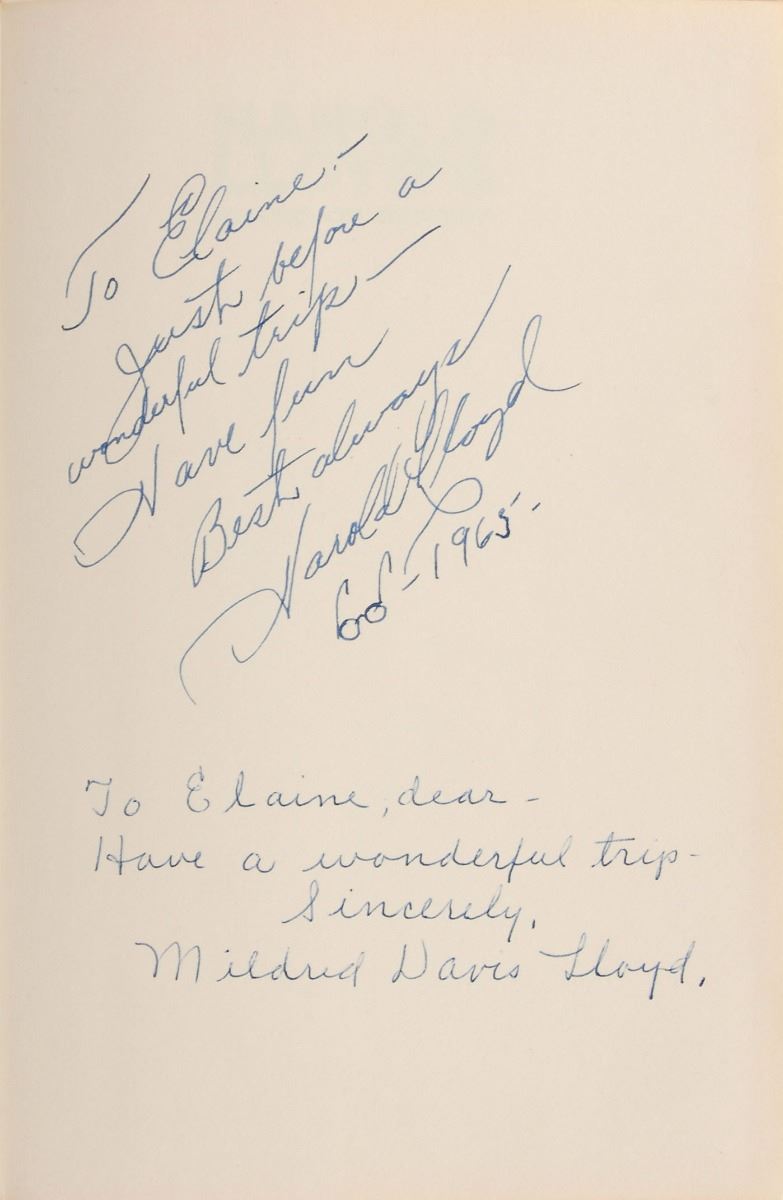 To Elaine -
Just before a
wonderful trip -
Have fun
Best always
Harold Lloyd
1965 -
To Elaine, dear -
Have a wonderful trip -
Sincerely,
Mildred Davis Lloyd.